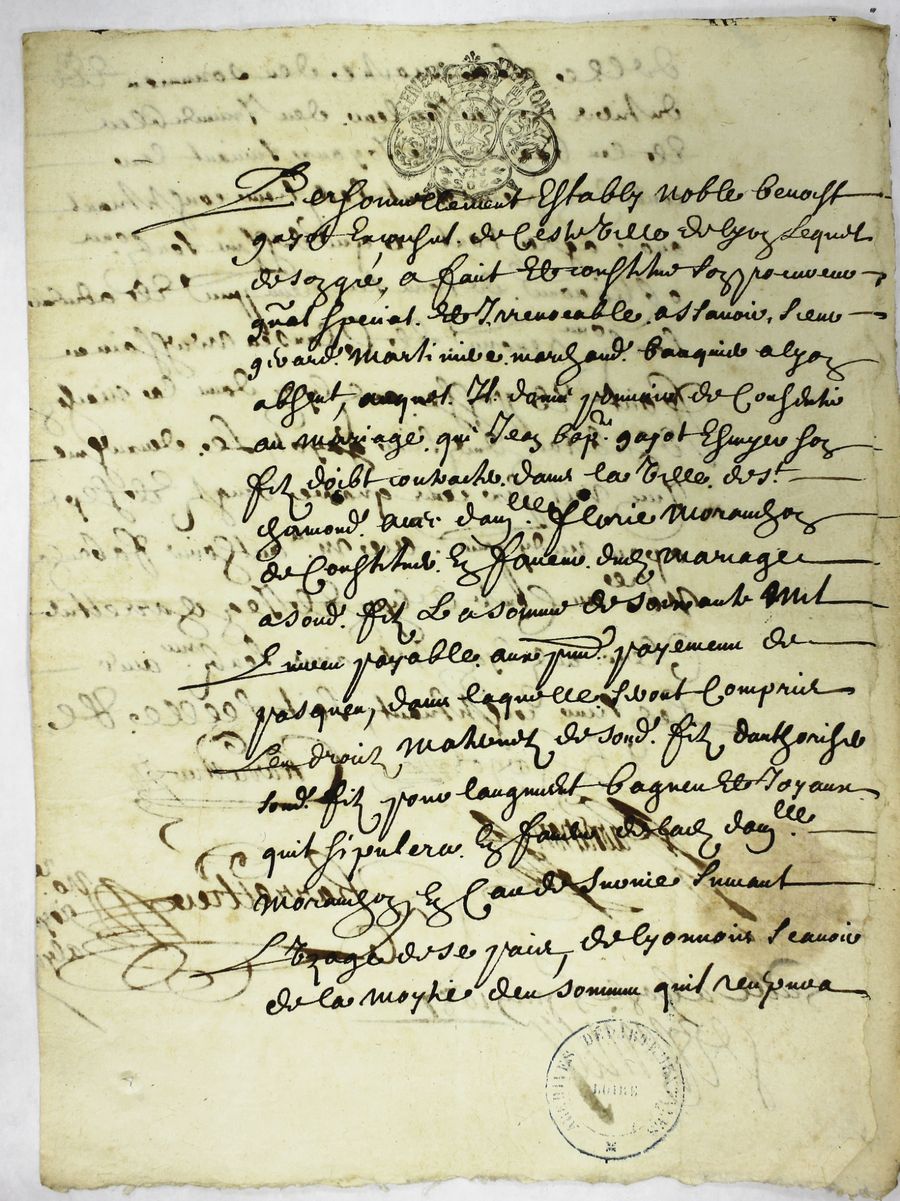 GENER DE LYON
Personnellement Estably noble benoist
gayot Exconsul de Ceste Ville de lyon Lequel
de son gré, a fait Et constitue son procureur
gnãl special Et Irrevocable assavoir, sieur
gerard Martiniere marchand banquier a lyon
absent, auquel Il donne pouvoir de Consentir
au mariage qui Jean bapte gayot Escuyer son
filz doibt contracter dans la Ville de st
chamond avec damlle florie Moranchon
de Constituer En faveur dudt mariage
a sond filz La somme de soixante Mil
Livres payable aux payemens de
pasques, dans laquelle seront Compris
Les droitz Maternelz de sond filz dauthoriser
sond filz pour laugment bagues Et Joyaux
quil stipulera En faveur de ladt damlle
Moranchon En Cas de survie suivant
L'Vzage de se païs, de lyonnois scavoir
de la moytié des sommes quil recepvra
ARCHIVES DÉPARTEMENTALES
LOIRE